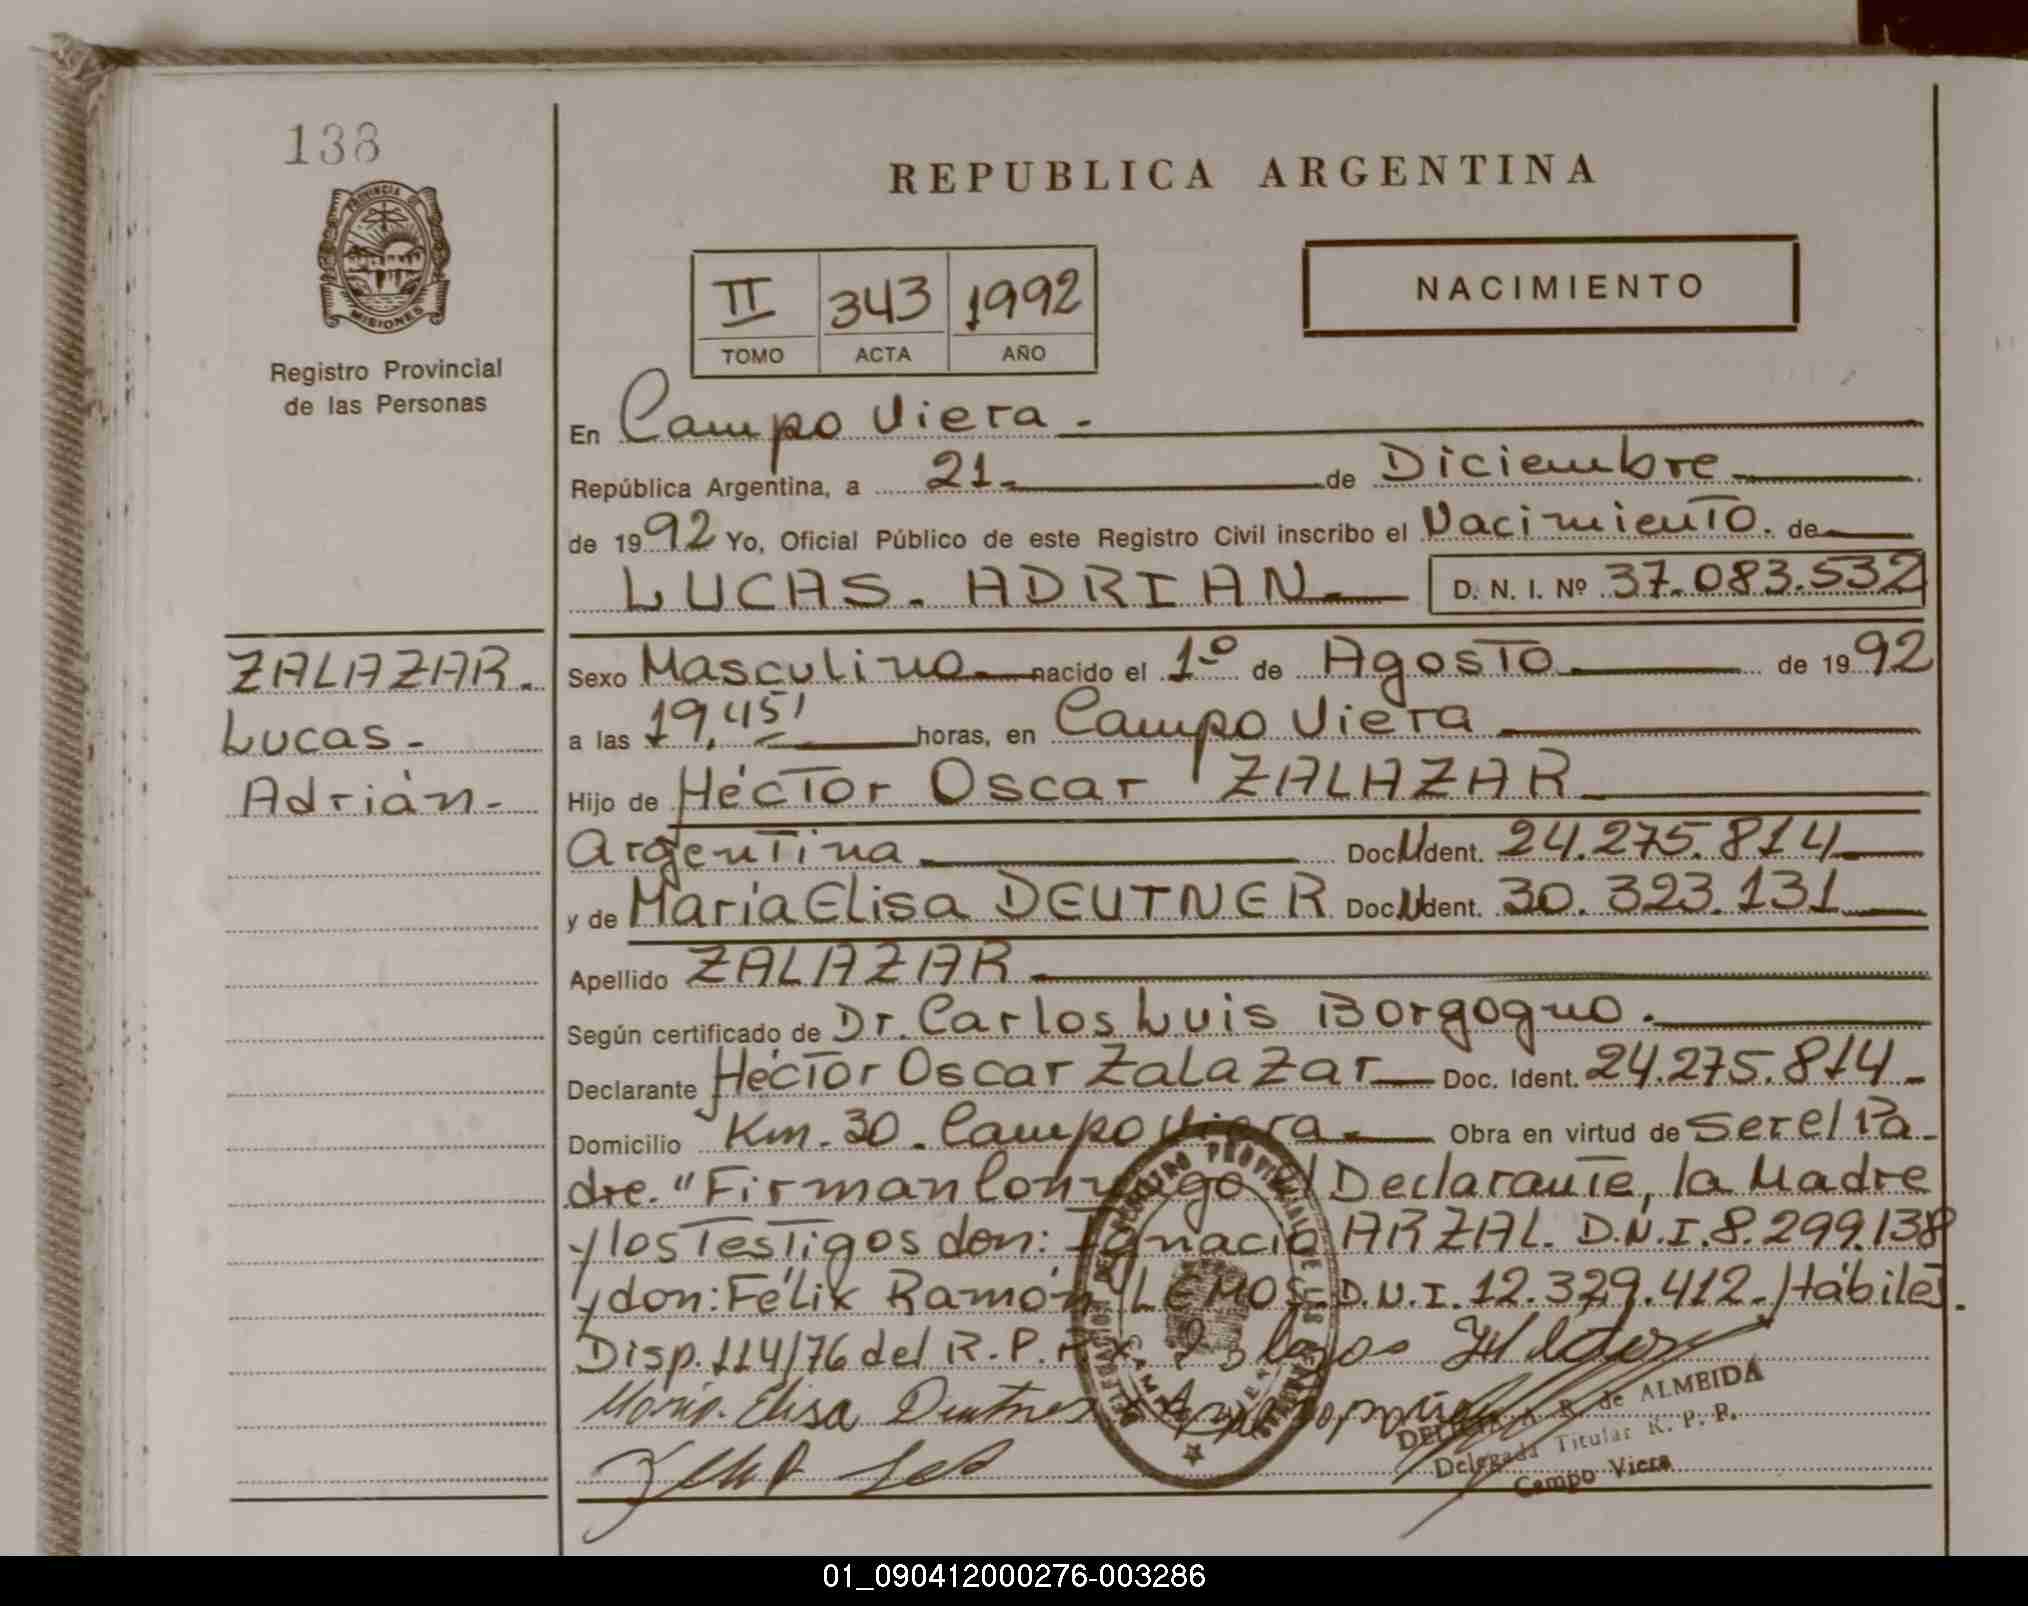 138
PROVINCIA
MISIONES
Registro Provincial
de las Personas
REPUBLICA ARGENTINA
II 343 1992
TOMO ACTA AÑO
NACIMIENTO
En Campo Viera.
República Argentina, a 21. de Diciembre
de 1992 Yo, Oficial Público de este Registro Civil inscribo el Nacimiento. de
LUCAS. ADRIAN. D. N. I. Nº 37.083.532
ZALAZAR.
Lucas.
Adrián.
Sexo Masculino nacido el 1º de Agosto de 1992
a las 19,45' horas, en Campo Viera
Hijo de Héctor Oscar ZALAZAR
Argentina Doc. Ident. 24.275.814
y de María Elisa DEUTNER Doc. Ident. 30.323.131
Apellido ZALAZAR
Según certificado de Dr. Carlos Luis Borgogno.
Declarante Héctor Oscar Zalazar Doc. Ident. 24.275.814.
Domicilio Km. 30. Campo Viera. Obra en virtud de Ser el Pa-
dre. "Firman conmigo el Declarante, la Madre
y los Testigos don: Ignacio ARZAL. D.N.I. 8.299.138
y don: Félix Ramón LEMOS D.N.I. 12.329.412. Hábiles.
Disp. 114/76 del R.P.P.
María Elisa Deutner
REGISTRO PROVINCIAL DE LAS PERSONAS
DELEGACION
de ALMEIDA
Delegada Titular R. P. P.
Campo Viera
01_090412000276-003286